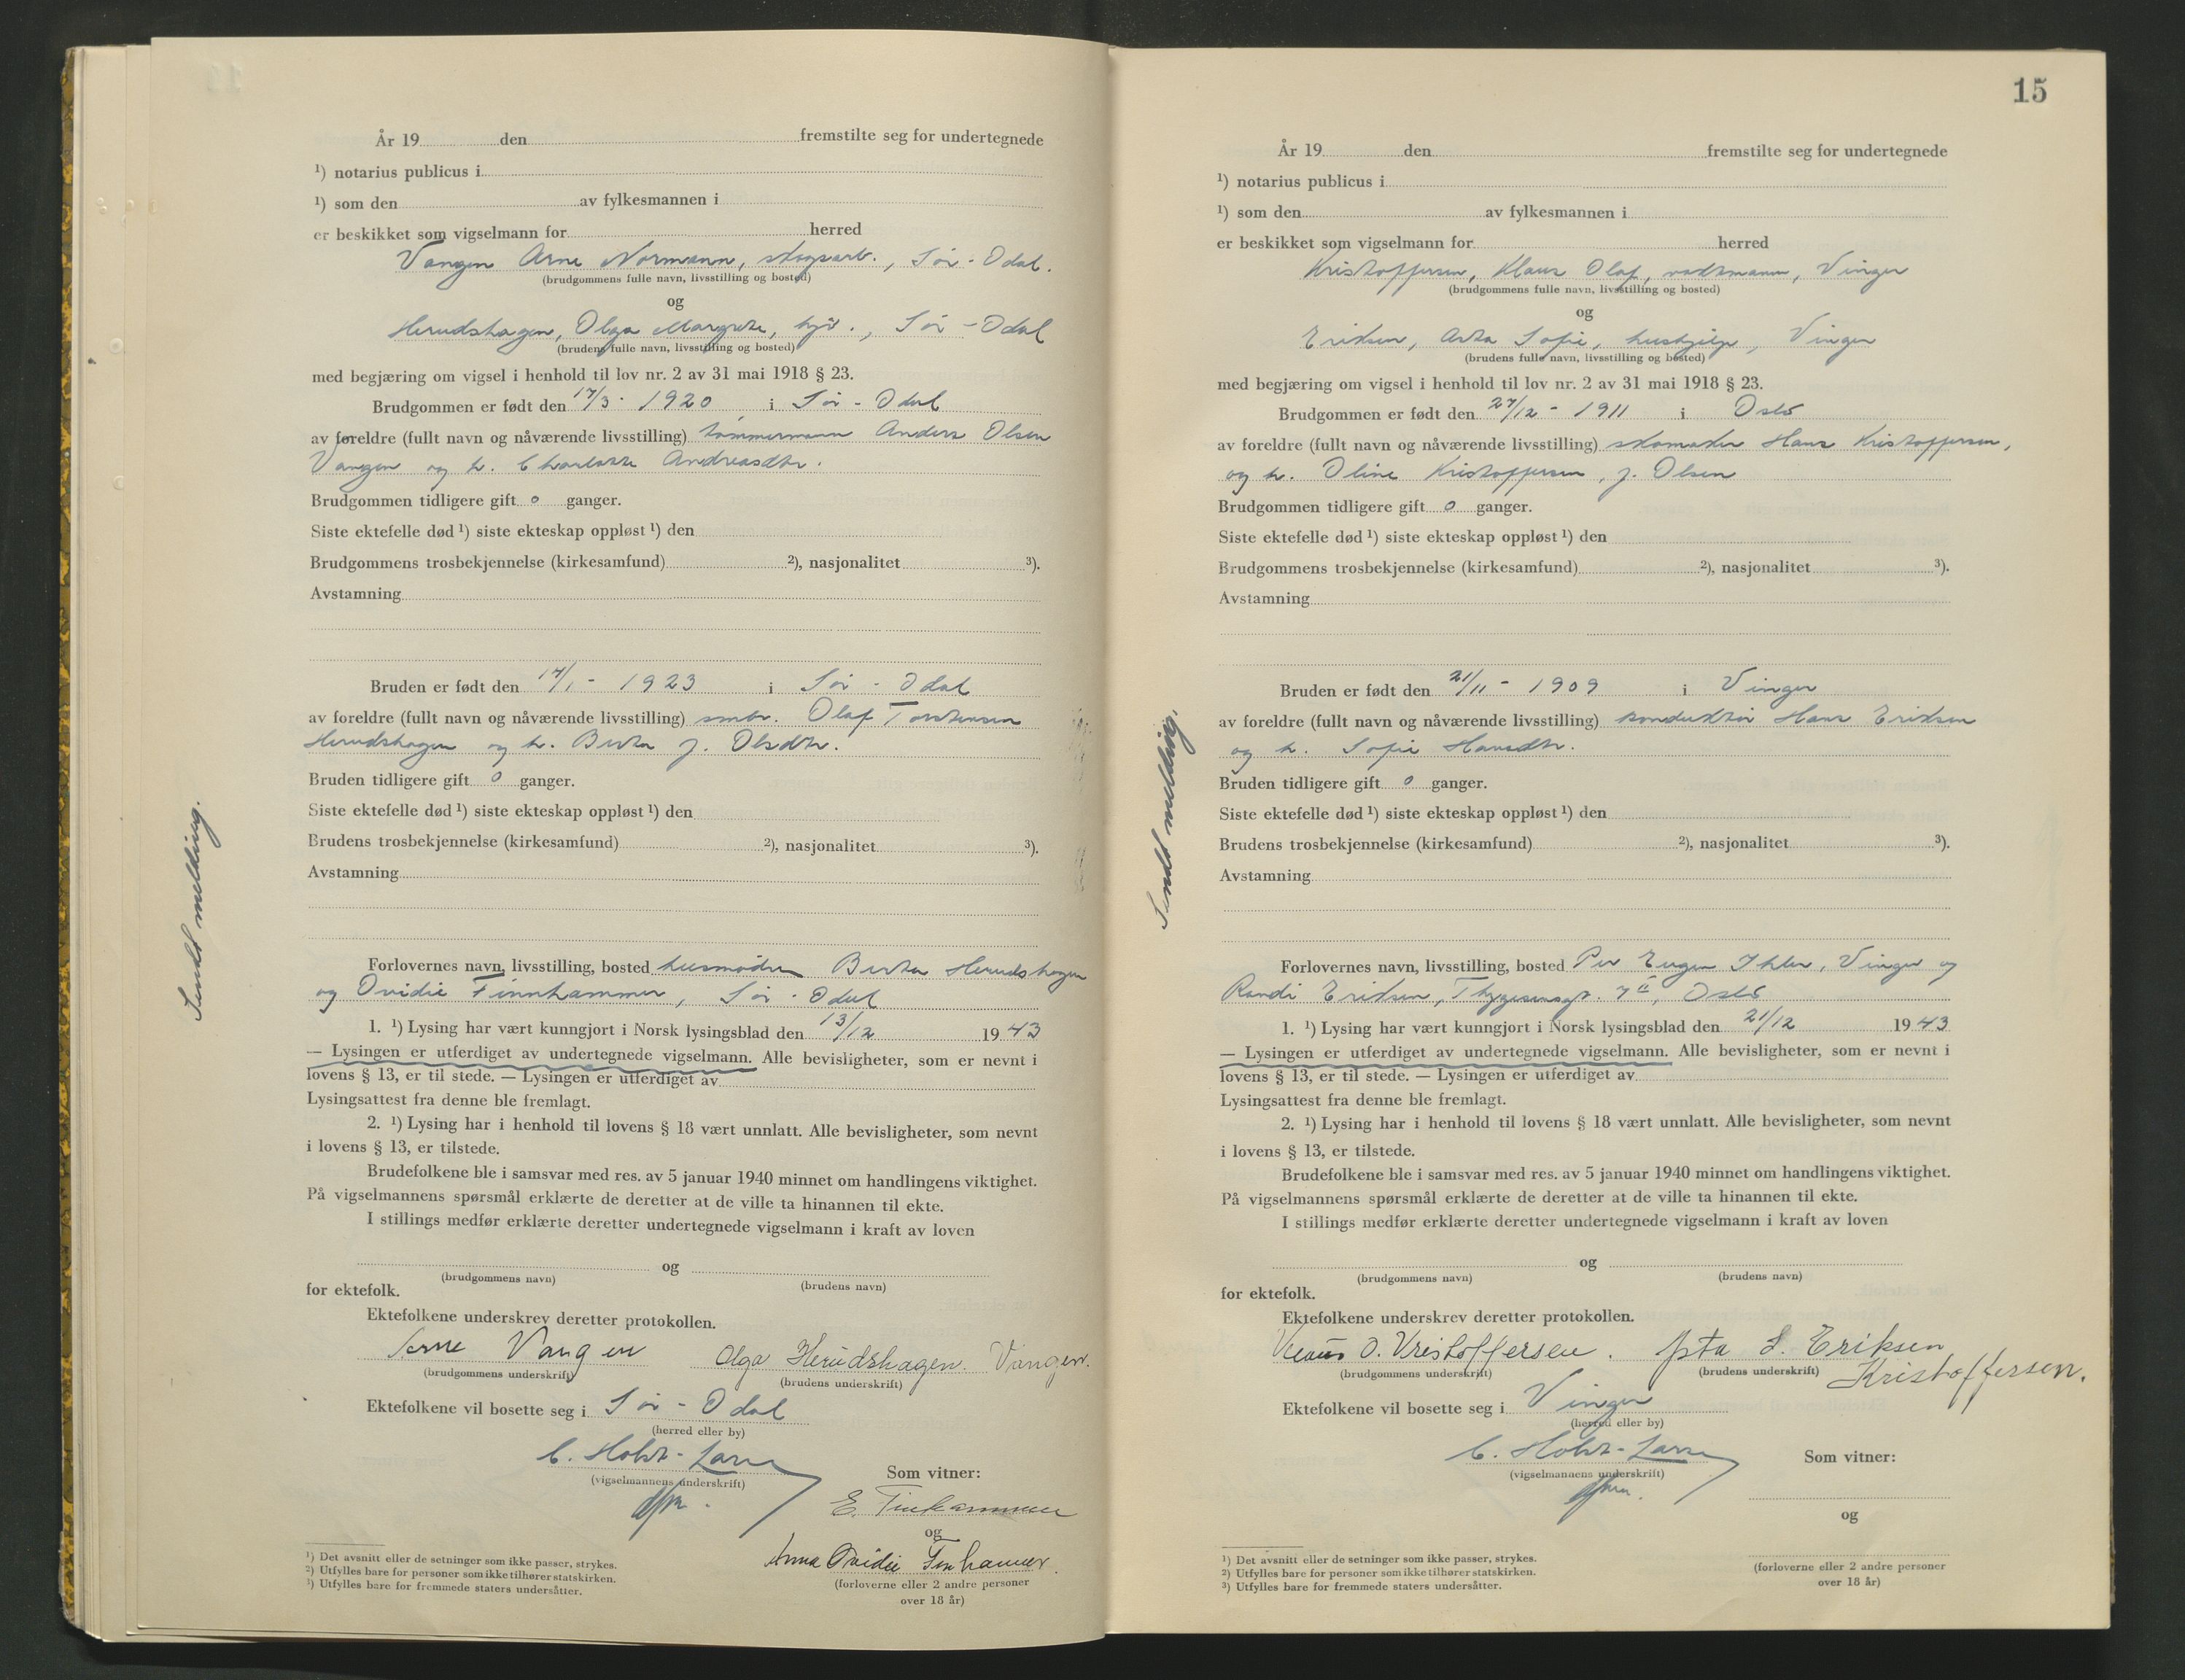 År 19 den fremstilte seg for undertegnede
¹) notarius publicus i
¹) som den av fylkesmannen i
er beskikket som vigselmann for herred
Vangen Arne Normann, skogsarb., Sør-Odal.
(brudgommens fulle navn, livsstilling og bosted)
og
Herudshagen, Olga Margrete, hjv., Sør-Odal
(brudens fulle navn, livsstilling og bosted)
med begjæring om vigsel i henhold til lov nr. 2 av 31 mai 1918 § 23.
Brudgommen er født den 17/3- 1920 i Sør-Odal
av foreldre (fullt navn og nåværende livsstilling) tømmermann Anders Olsen
Vangen og h. Charlotte Andreasdtr.
Brudgommen tidligere gift 0 ganger.
Siste ektefelle død ¹) siste ekteskap oppløst ¹) den
Brudgommens trosbekjennelse (kirkesamfund) ²), nasjonalitet ³).
Avstamning
Bruden er født den 14/1- 1923 i Sør-Odal
av foreldre (fullt navn og nåværende livsstilling) småbr. Olaf Torstensen
Herudshagen og h. Berta f. Olsdtr.
Bruden tidligere gift 0 ganger.
Siste ektefelle død ¹) siste ekteskap oppløst ¹) den
Brudens trosbekjennelse (kirkesamfund) ²), nasjonalitet ³).
Avstamning
Sendt melding.
Forlovernes navn, livsstilling, bosted husmødre Berta Herudshagen
og Ovidie Finnhammer, Sør-Odal
1. ¹) Lysing har vært kunngjort i Norsk lysingsblad den 13/12 1943
— Lysingen er utferdiget av undertegnede vigselmann. Alle bevisligheter, som er nevnt i
lovens § 13, er til stede. — Lysingen er utferdiget av
Lysingsattest fra denne ble fremlagt.
2. ¹) Lysing har i henhold til lovens § 18 vært unnlatt. Alle bevisligheter, som nevnt
i lovens § 13, er tilstede.
Brudefolkene ble i samsvar med res. av 5 januar 1940 minnet om handlingens viktighet.
På vigselmannens spørsmål erklærte de deretter at de ville ta hinannen til ekte.
I stillings medfør erklærte deretter undertegnede vigselmann i kraft av loven
og
(brudgommens navn) (brudens navn)
for ektefolk.
Ektefolkene underskrev deretter protokollen.
Arne Vangen Olga Herudshagen. Vangen.
(brudgommens underskrift) (brudens underskrift)
Ektefolkene vil bosette seg i Sør-Odal
(herred eller by)
C. Holst-Larsen
(vigselmannens underskrift)
Som vitner:
E. Finhammer
og
Anna Ovidie Finhammer.
(forloverne eller 2 andre personer
over 18 år)
¹) Det avsnitt eller de setninger som ikke passer, strykes.
²) Utfylles bare for personer som ikke tilhører statskirken.
³) Utfylles bare for fremmede staters undersåtter.
15
År 19 den fremstilte seg for undertegnede
¹) notarius publicus i
¹) som den av fylkesmannen i
er beskikket som vigselmann for herred
Kristoffersen, Klaus Olaf, vaktmann, Vinger
(brudgommens fulle navn, livsstilling og bosted)
og
Eriksen, Asta Sofie, hushjelp, Vinger
(brudens fulle navn, livsstilling og bosted)
med begjæring om vigsel i henhold til lov nr. 2 av 31 mai 1918 § 23.
Brudgommen er født den 27/12- 1911 i Oslo
av foreldre (fullt navn og nåværende livsstilling) skomaker Hans Kristoffersen,
og h. Oline Kristoffersen, f. Olsen
Brudgommen tidligere gift 0 ganger.
Siste ektefelle død ¹) siste ekteskap oppløst ¹) den
Brudgommens trosbekjennelse (kirkesamfund) ²), nasjonalitet ³).
Avstamning
Bruden er født den 21/11- 1909 i Vinger
av foreldre (fullt navn og nåværende livsstilling) konduktør Hans Eriksen
og h. Sofie Hansdtr.
Bruden tidligere gift 0 ganger.
Siste ektefelle død ¹) siste ekteskap oppløst ¹) den
Brudens trosbekjennelse (kirkesamfund) ²), nasjonalitet ³).
Avstamning
Sendt melding.
Forlovernes navn, livsstilling, bosted Per Eugen Ihler, Vinger og
Randi Eriksen, Thygesensgt. 7 II, Oslo
1. ¹) Lysing har vært kunngjort i Norsk lysingsblad den 21/12 1943
— Lysingen er utferdiget av undertegnede vigselmann. Alle bevisligheter, som er nevnt i
lovens § 13, er til stede. — Lysingen er utferdiget av
Lysingsattest fra denne ble fremlagt.
2. ¹) Lysing har i henhold til lovens § 18 vært unnlatt. Alle bevisligheter, som nevnt
i lovens § 13, er tilstede.
Brudefolkene ble i samsvar med res. av 5 januar 1940 minnet om handlingens viktighet.
På vigselmannens spørsmål erklærte de deretter at de ville ta hinannen til ekte.
I stillings medfør erklærte deretter undertegnede vigselmann i kraft av loven
og
(brudgommens navn) (brudens navn)
for ektefolk.
Ektefolkene underskrev deretter protokollen.
Klaus O. Kristoffersen. Asta S. Eriksen
Kristoffersen.
(brudgommens underskrift) (brudens underskrift)
Ektefolkene vil bosette seg i Vinger
(herred eller by)
C. Holst-Larsen
(vigselmannens underskrift)
Som vitner:
og
(forloverne eller 2 andre personer
over 18 år)
¹) Det avsnitt eller de setninger som ikke passer, strykes.
²) Utfylles bare for personer som ikke tilhører statskirken.
³) Utfylles bare for fremmede staters undersåtter.